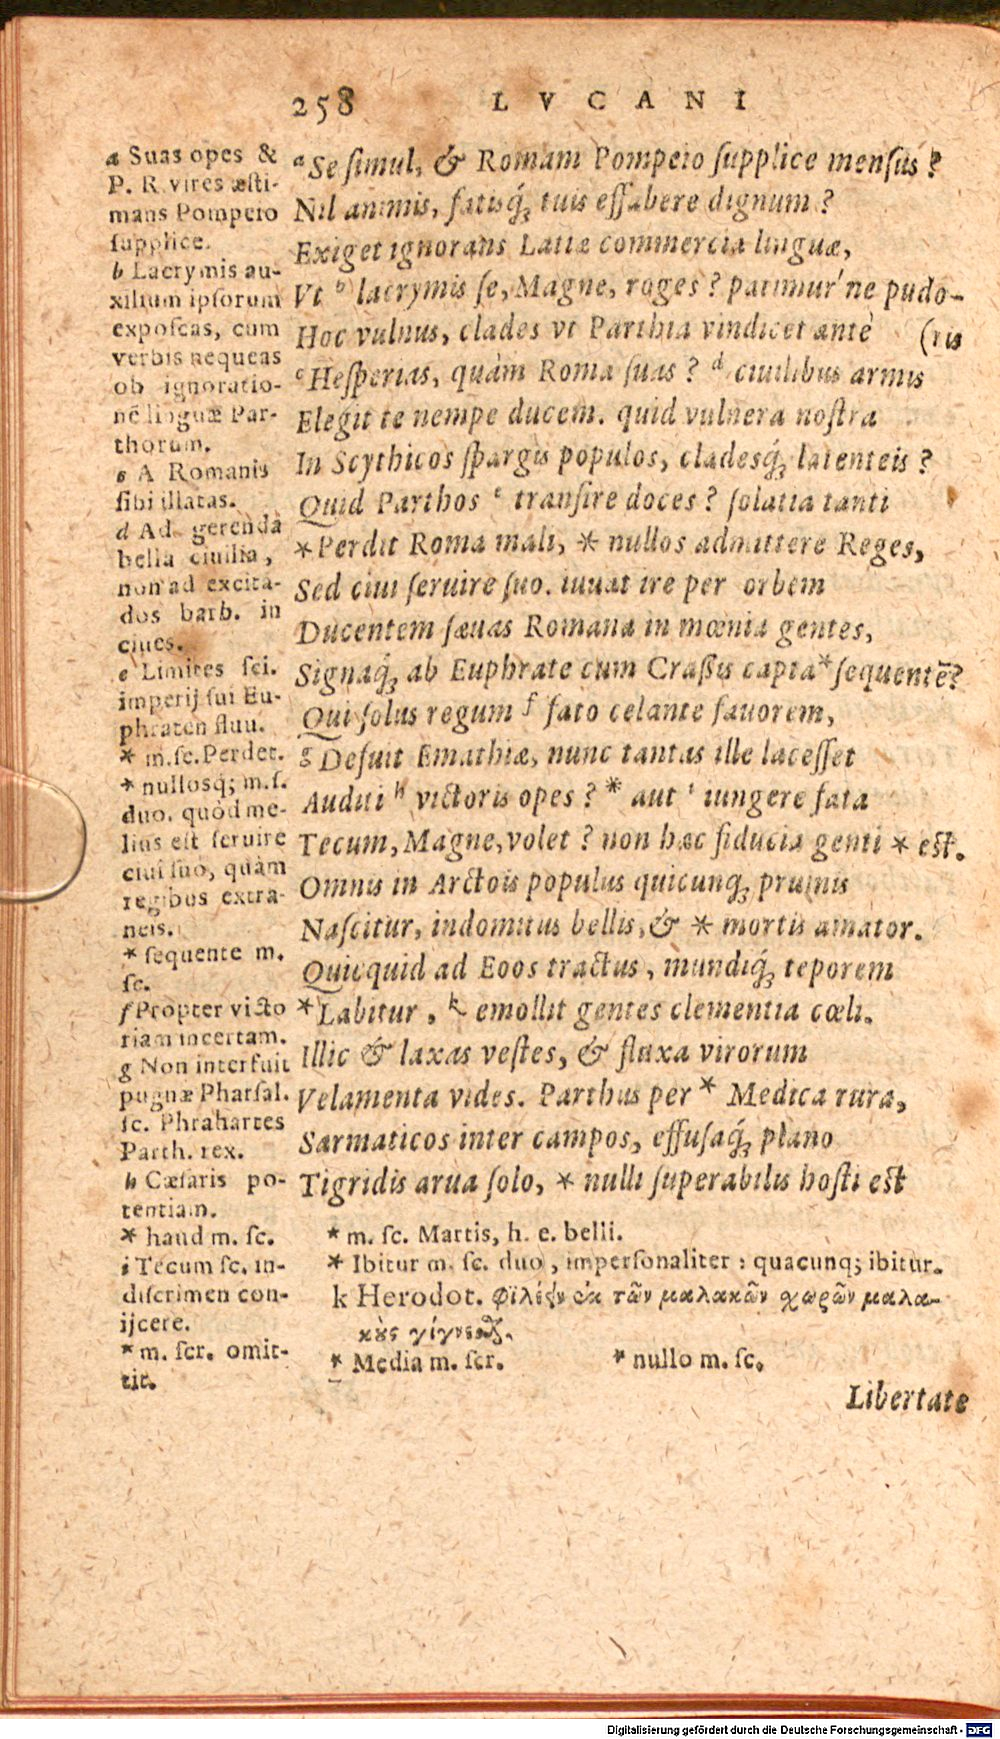 258 LVCANI
a Se simul, & Romam Pompeio supplice mensus?
Nil animis, fatisq́; tuis effabere dignum?
Exiget ignorans Latiæ commercia linguæ,
Vt b lacrymis se, Magne, roges? patimur'ne pudo-
Hoc vulnus, clades vt Parthia vindicet antè (ris
c Hesperias, quàm Roma suas? d ciuilibus armis
Elegit te nempe ducem. quid vulnera nostra
In Scythicos spargis populos, cladesq́; latenteis?
Quid Parthos e transire doces? solatia tanti
*Perdit Roma mali, * nullos admittere Reges,
Sed ciui seruire suo. iuuat ire per orbem
Ducentem sæuas Romana in mœnia gentes,
Signaq́; ab Euphrate cum Crassis capta* sequentē?
Qui solus regum f fato celante fauorem,
g Defuit Emathiæ, nunc tantas ille lacesset
Auditi h victoris opes? * aut i iungere fata
Tecum, Magne, volet? non hæc fiducia genti * est.
Omnis in Arctois populus quicunq; pruinis
Nascitur, indomitus bellis, & * mortis amator.
Quicquid ad Eoos tractus, mundiq́; teporem
*Labitur, k emollit gentes clementia cœli.
Illic & laxas vestes, & fluxa virorum
Velamenta vides. Parthus per * Medica rura,
Sarmaticos inter campos, effusaq́; plano
Tigridis arua solo, * nulli superabilis hosti est
a Suas opes &
P. R. vires æsti-
mans Pompeio
supplice.
b Lacrymis au-
xilium ipsorum
exposcas, cum
verbis nequeas
ob ignoratio-
nē linguæ Par-
thorum.
c A Romanis
sibi illatas.
d Ad gerenda
bella ciuilia,
non ad excitā-
dos barb. in
ciues.
e Limites sci.
imperij sui Eu-
phraten fluu.
* m. sc. Perdet.
* nullosq; m. s.
duo. quòd me-
lius est seruire
ciui suo, quàm
regibus extra-
neis.
* sequente m.
sc.
f Propter victo
riam incertam.
g Non interfuit
pugnæ Pharsal.
sc. Phrahartes
Parth. rex.
h Cæsaris po-
tentiam.
* haud m. sc.
i Tecum sc. in-
discrimen con-
ijcere.
* m. scr. omit-
tit.
* m. sc. Martis, h. e. belli.
* Ibitur m. sc. duo, impersonaliter: quacunq; ibitur.
k Herodot. φιλέειν ἐκ τῶν μαλακῶν χωρῶν μαλα-
κοὺς γίγνεσθαι.
* Media m. scr. * nullo m. sc.
Libertate
Digitalisierung gefördert durch die Deutsche Forschungsgemeinschaft - DFG